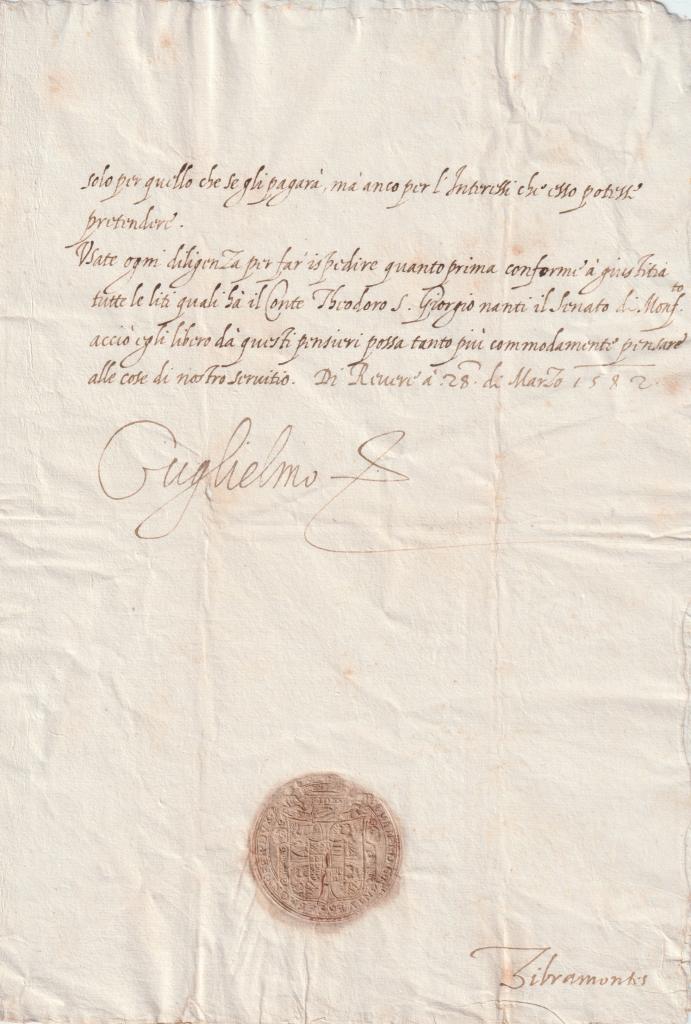 solo per quello che se gli pagarà, mà anco per l'Interessi che esso potesse
pretendere.
Usate ogni diligenza per far ispedire quanto prima conforme à giustitia
tutte le liti quali hà il Conte Theodoro S. Giorgio nanti il Senato di Monf.to
acciò egli libero dà questi pensieri possa tanto più commodamente pensare
alle cose di nostro servitio. Di Revere à 28. de Marzo 1582.
Guglielmo
Zibramontes